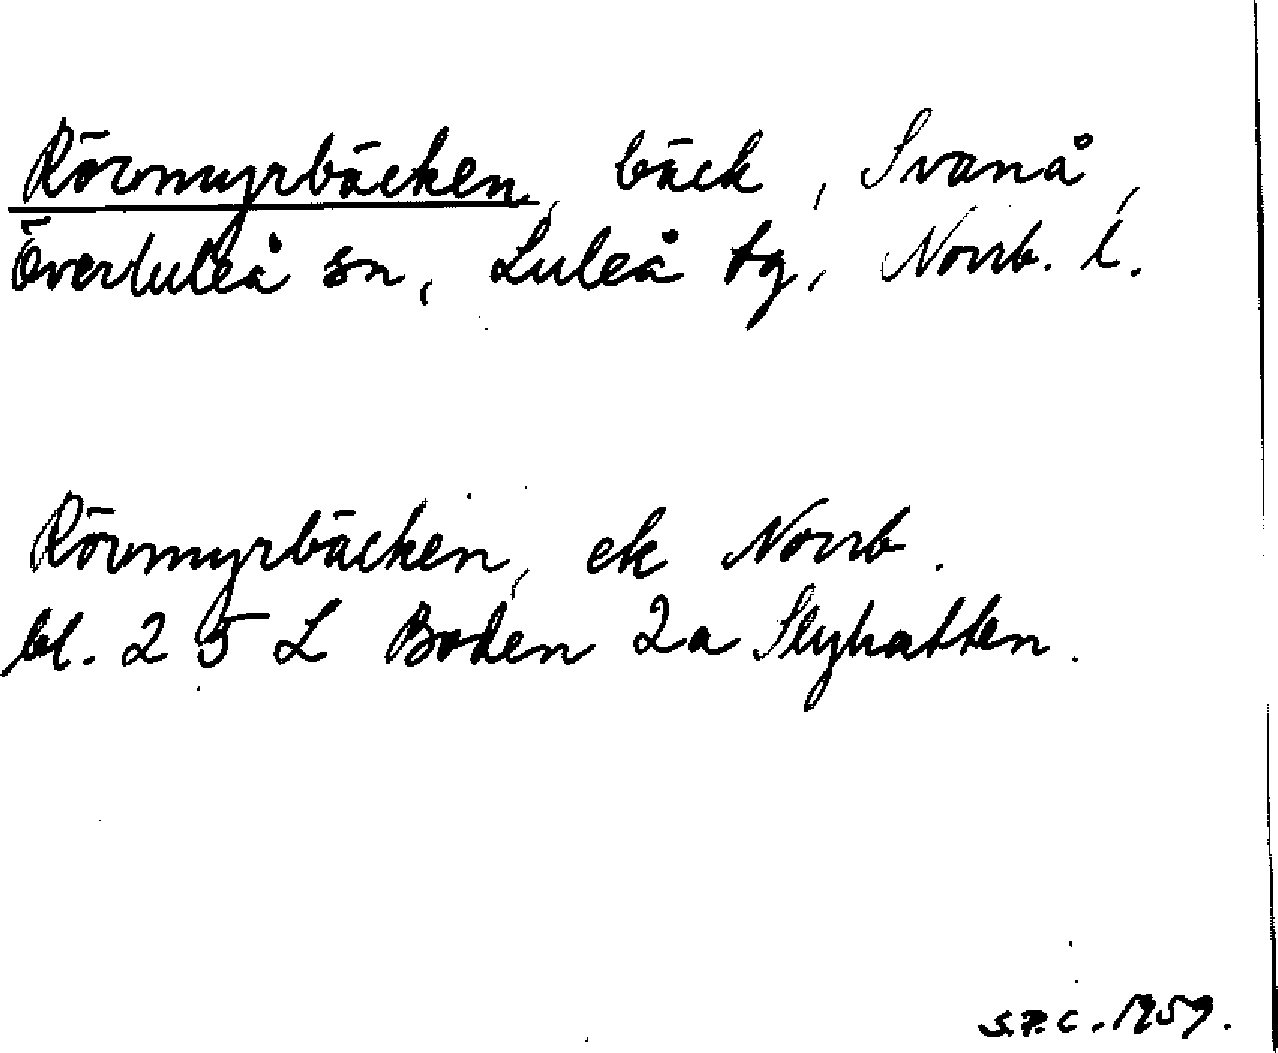 Rörmyrbäcken, bäck, Svanå,
Överluleå sn, Luleå tg, Norrb. l.
Rörmyrbäcken, ek Norrb.
bl. 25 L Boden 2a Slyhatten.
S.P.C. 1959.